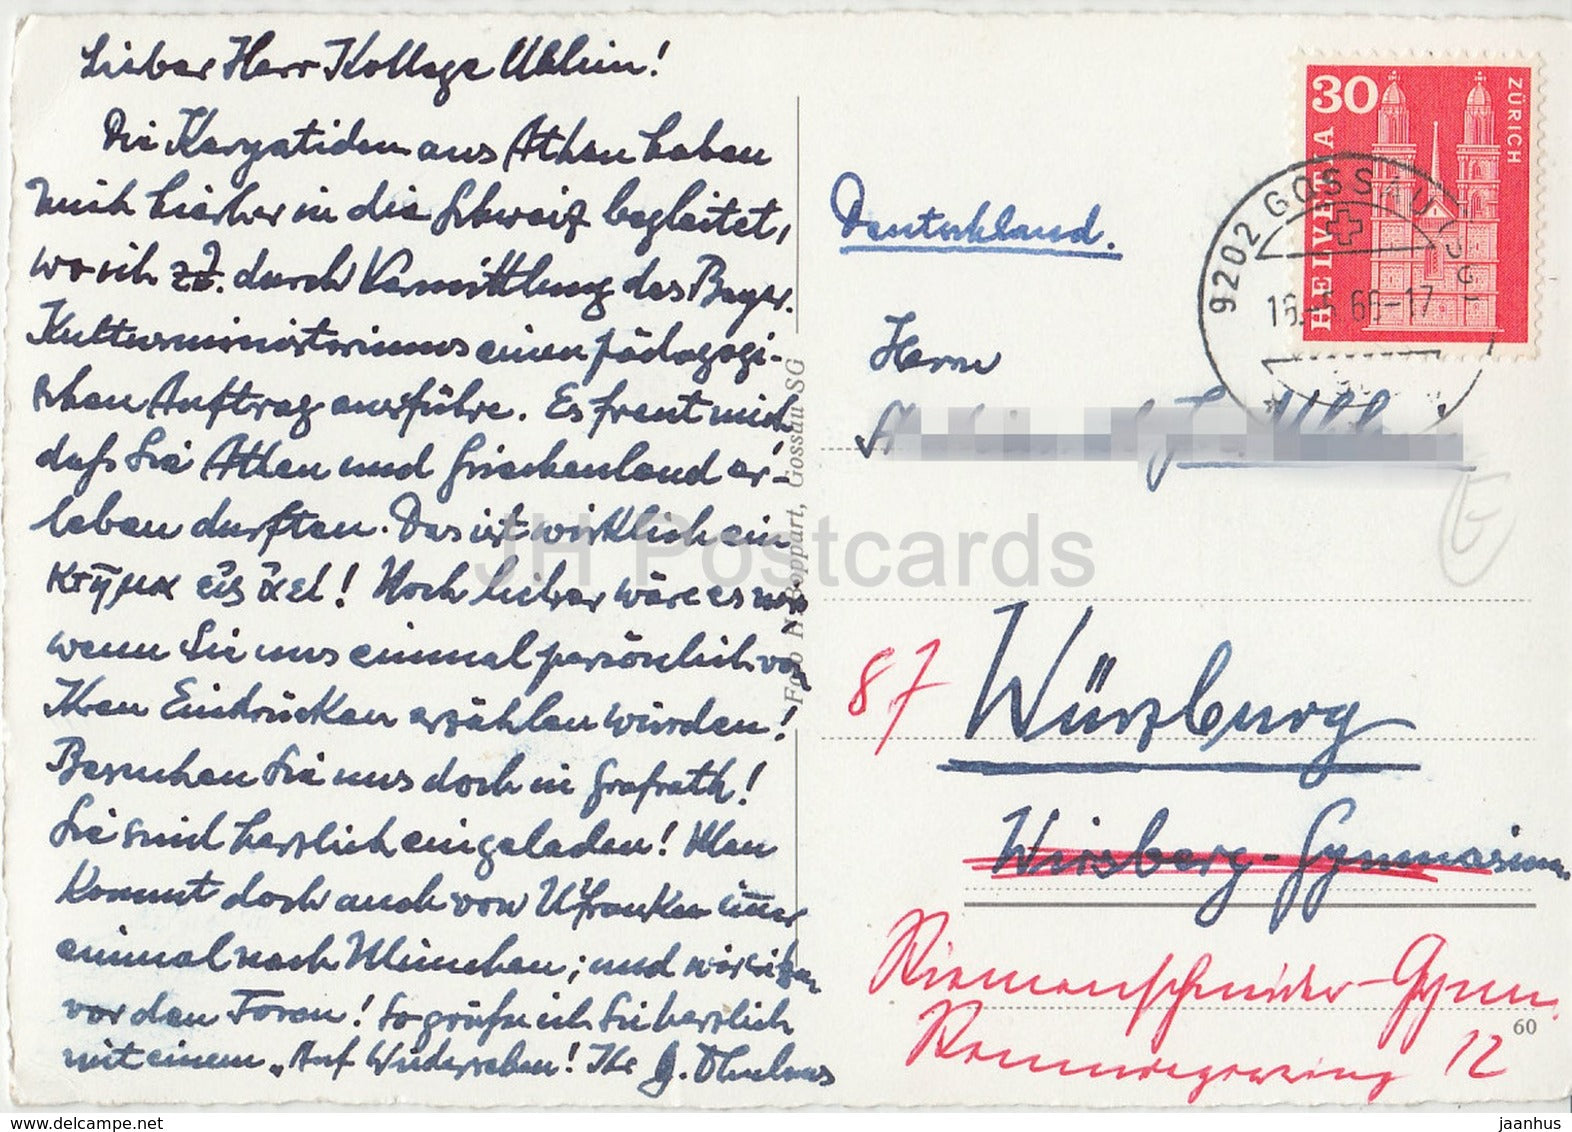 Lieber Herr Kollege Uhlein!
Die Karyatiden aus Athen haben
mich hierher in die Schweiz begleitet,
wo ich z.Z. durch Vermittlung des Bayer.
Kultusministeriums einen pädagogi-
schen Auftrag ausführe. Es freut mich
daß Sie Athen und Griechenland er-
leben durften. Das ist wirklich ein
κτῆμα εἰς ἀεί! Noch lieber wäre es uns
wenn Sie uns einmal persönlich von
Ihren Eindrücken erzählen würden!
Besuchen Sie uns doch in Grafrath!
Sie sind herzlich eingeladen! Man
kommt doch auch von U'franken immer
einmal nach München; und wir sitzen
vor den Toren! So grüße ich Sie herzlich
mit einem „Auf Wiedersehen! Ihr
Foto H. Boppart, Gossau SG
30
HELVETIA
ZÜRICH
9202 GOSSAU (SG)
66-17
Deutschland.
Herrn
87 Würzburg
Wirsberg-Gymnasium
Riemenschneider-Gymn.
Rennwegerring 12
60
JH Postcards
delcampe.net
jaanhus